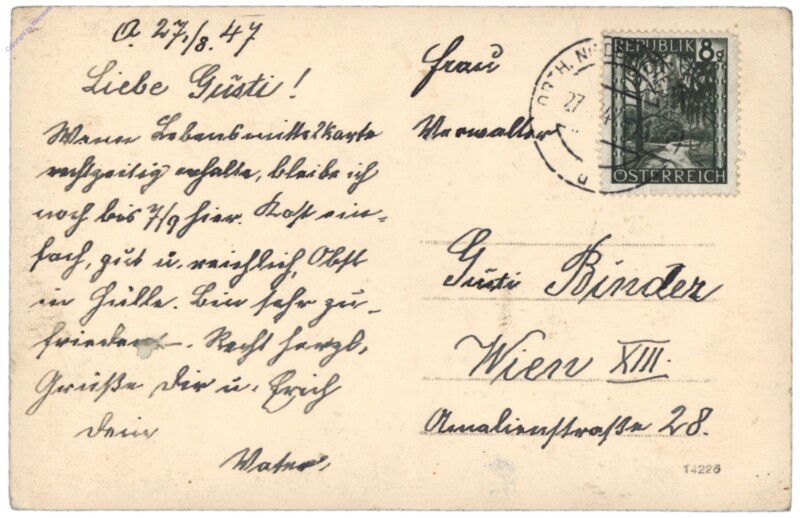 O. 27./8. 47
Liebe Gusti!
Wenn Lebensmittelkarte
rechtzeitig erhalte, bleibe ich
noch bis 7/9 hier. Kost ein-
fach, gut u. reichlich, Obst
in Hülle. Bin sehr zu-
frieden. Recht herzl.
Grüße Dir u. Erich
Dein
Vater.
Frau
Verwalter
Gusti Binder
Wien XIII.
Amalienstraße 28.
REPUBLIK 8g
ÖSTERREICH
ORTH, NIED
27
14226
Copyright by